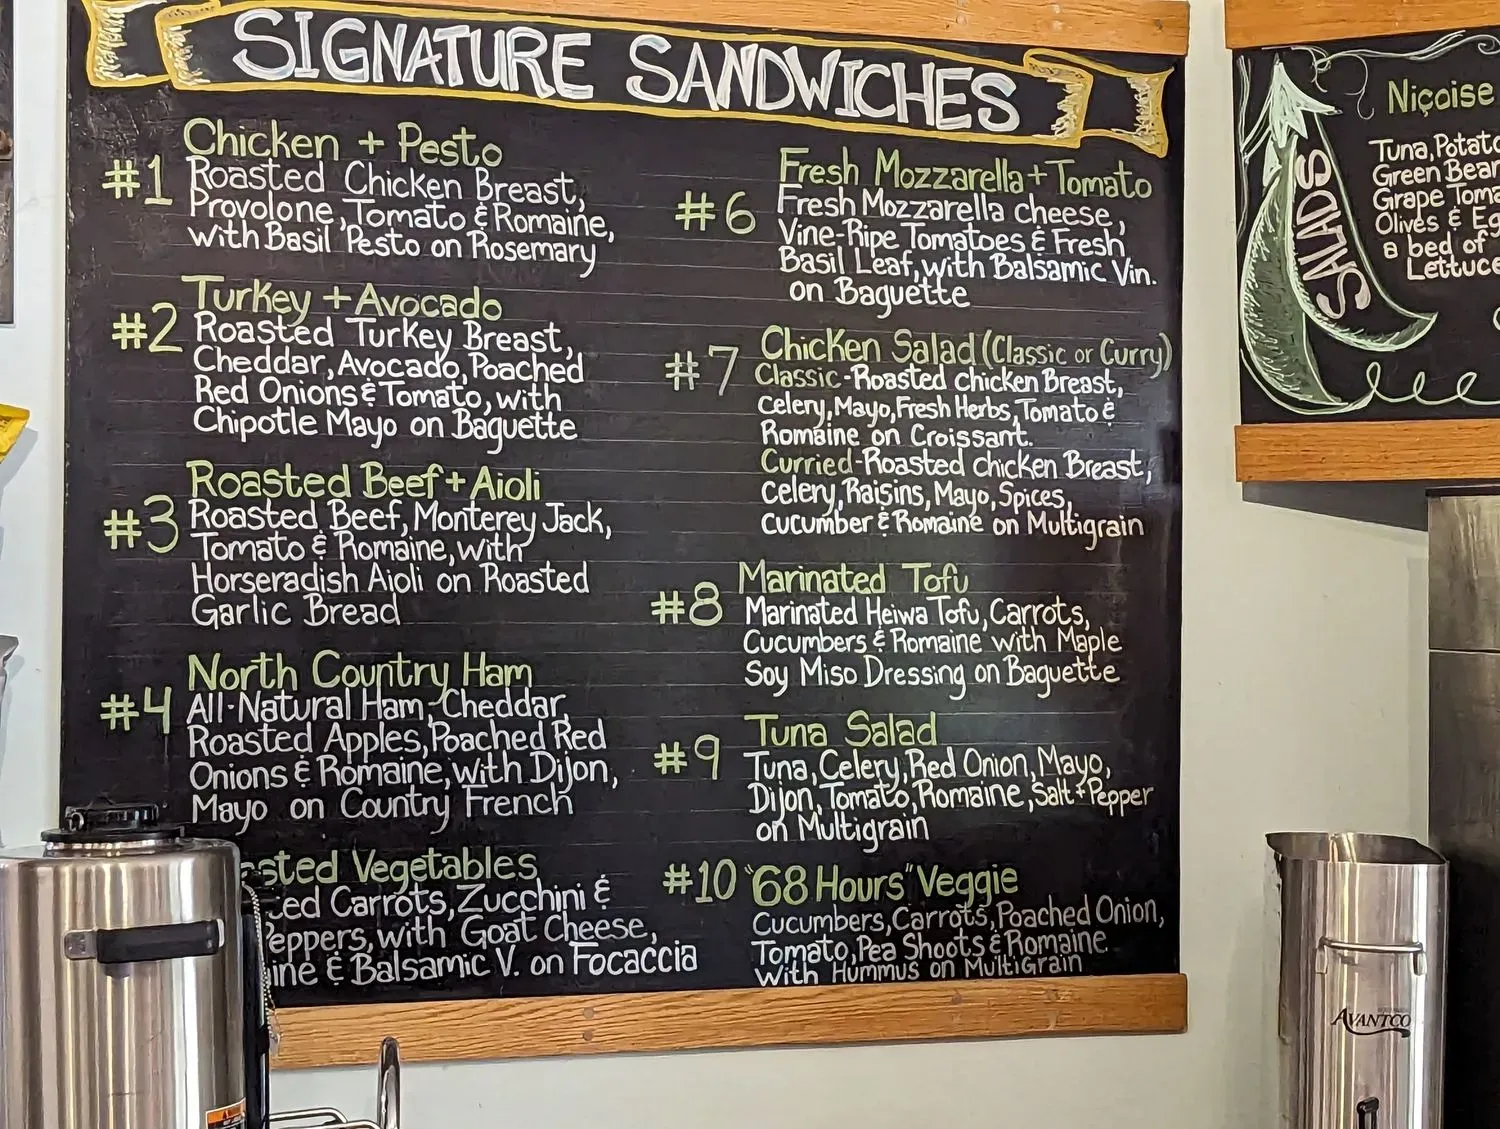 SIGNATURE SANDWICHES
#1 Chicken + Pesto
Roasted Chicken Breast,
Provolone, Tomato & Romaine,
with Basil Pesto on Rosemary
#2 Turkey + Avocado
Roasted Turkey Breast,
Cheddar, Avocado, Poached
Red Onions & Tomato, with
Chipotle Mayo on Baguette
#3 Roasted Beef + Aioli
Roasted Beef, Monterey Jack,
Tomato & Romaine, with
Horseradish Aioli on Roasted
Garlic Bread
#4 North Country Ham
All-Natural Ham, Cheddar,
Roasted Apples, Poached Red
Onions & Romaine, with Dijon,
Mayo on Country French
Vegetables
Carrots, Zucchini &
Peppers, with Goat Cheese,
& Balsamic V. on Focaccia
#6 Fresh Mozzarella + Tomato
Fresh Mozzarella cheese,
Vine-Ripe Tomatoes & Fresh
Basil Leaf, with Balsamic Vin.
on Baguette
#7 Chicken Salad (Classic or Curry)
Classic-Roasted chicken Breast,
celery, Mayo, Fresh Herbs, Tomato &
Romaine on Croissant.
Curried-Roasted chicken Breast,
celery, Raisins, Mayo, Spices,
cucumber & Romaine on Multigrain
#8 Marinated Tofu
Marinated Heiwa Tofu, Carrots,
Cucumbers & Romaine with Maple
Soy Miso Dressing on Baguette
#9 Tuna Salad
Tuna, Celery, Red Onion, Mayo,
Dijon, Tomato, Romaine, Salt + Pepper
on Multigrain
#10 "68 Hours" Veggie
Cucumbers, Carrots, Poached Onion,
Tomato, Pea Shoots & Romaine
With Hummus on MultiGrain
SALADS
Niçoise
Tuna, Potato
Green Bean
Grape Toma
Olives & Eg
a bed of
Lettuce
AVANTCO